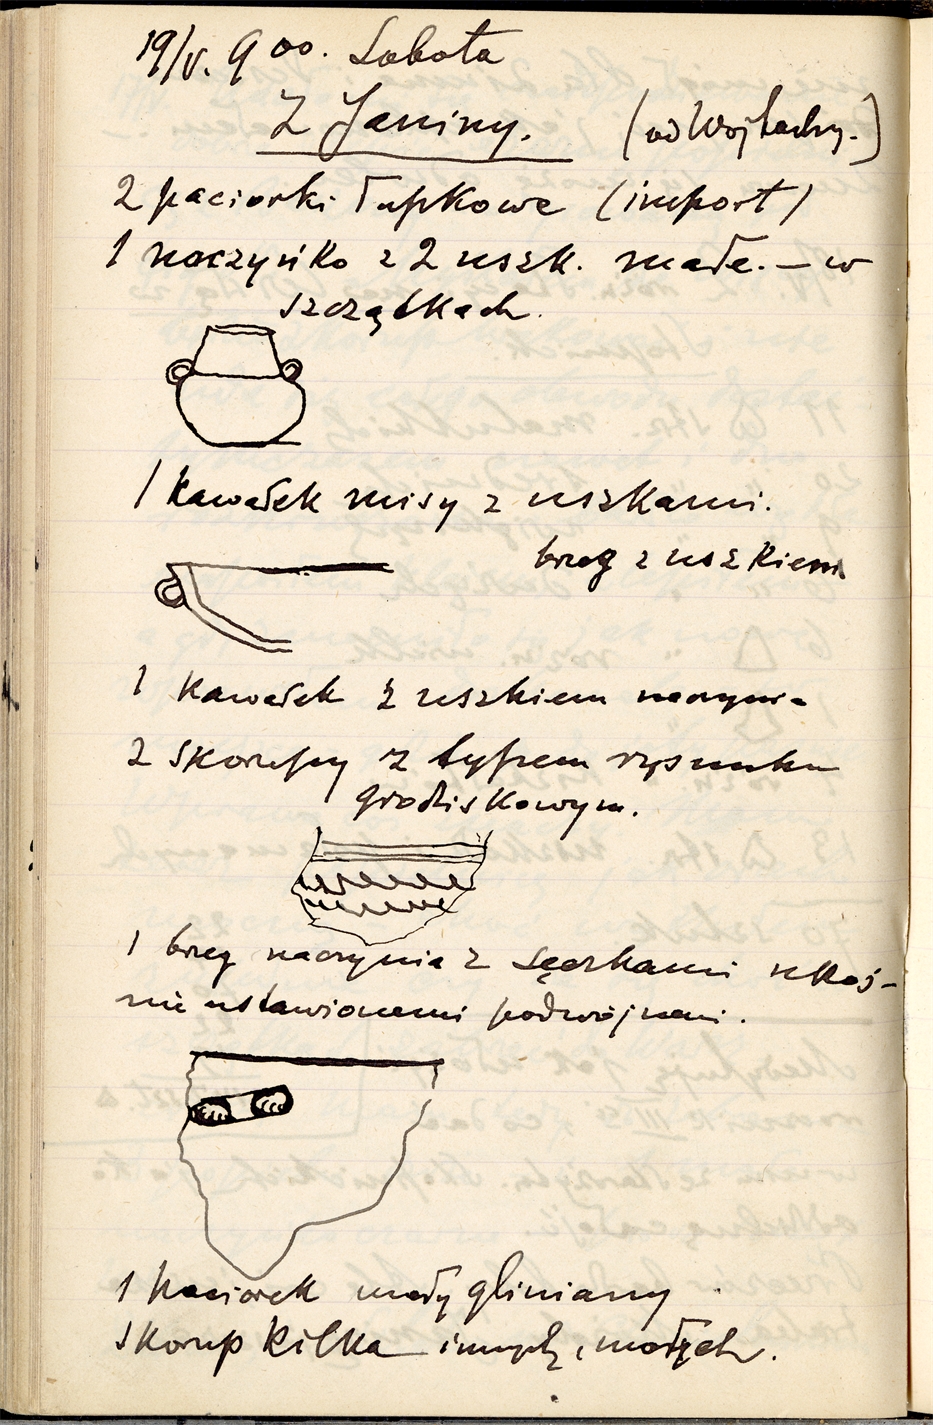 19/V. 9⁰⁰. Sobota
Z Janiny. (od Wojtachy.)
2 paciorki łupkowe (import)
1 naczyńko z 2 uszk. małe. — w
szczątkach.
1 kawałek misy z uszkami.
brzeg z uszkiem
1 kawałek z uszkiem naczynia
2 skorupy z typem rysunku
grodziskowym.
1 brzeg naczynia z sęczkami ukoś-
nie ustawionemi podwójnemi.
1 paciorek mały gliniany
skorup kilka innych, małych.